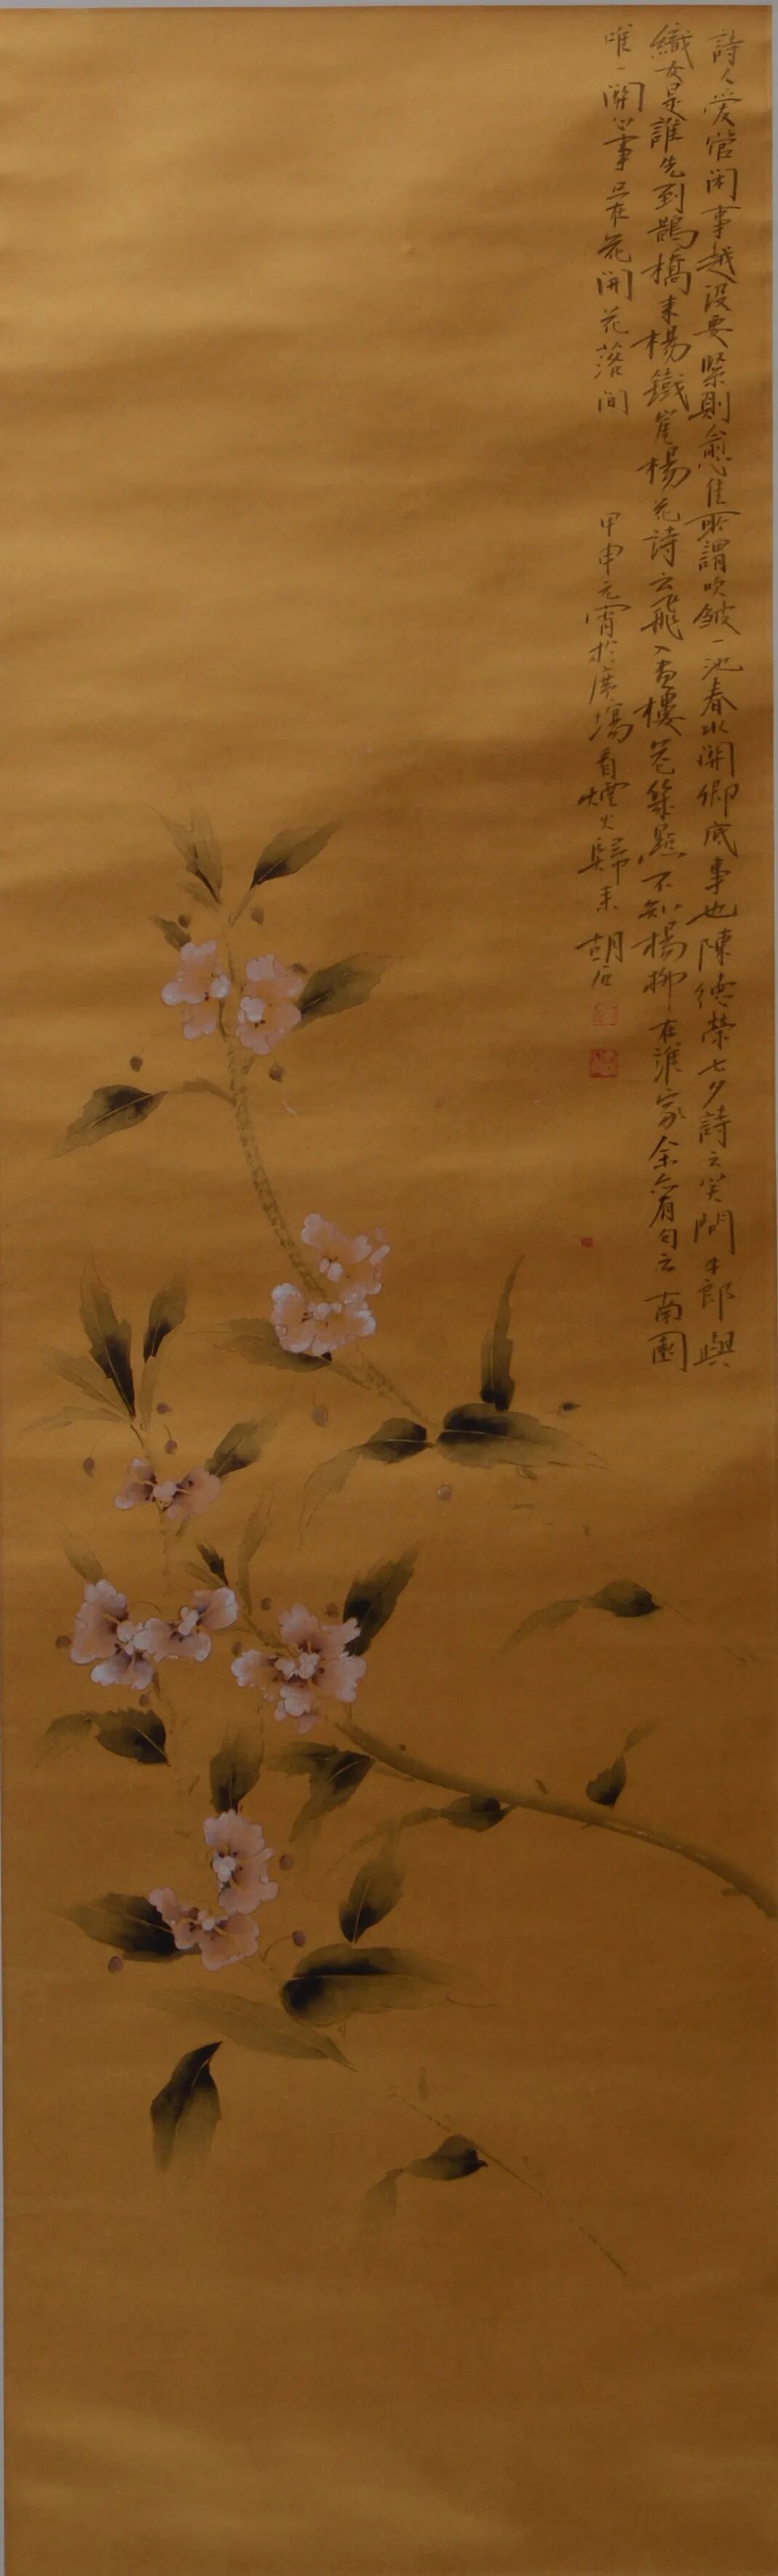 詩人愛管闲事越没要緊則愈佳所謂吹皺一池春水關卿底事也陳德榮七夕詩云笑問牛郎與
織女是誰先到鵲橋来楊鐵崖楊花詩云飛入畫樓花幾點不知楊柳在誰家余亦有句云南園
唯一關心事只在花開花落間
甲申元宵於廣場看煙火歸来 胡石